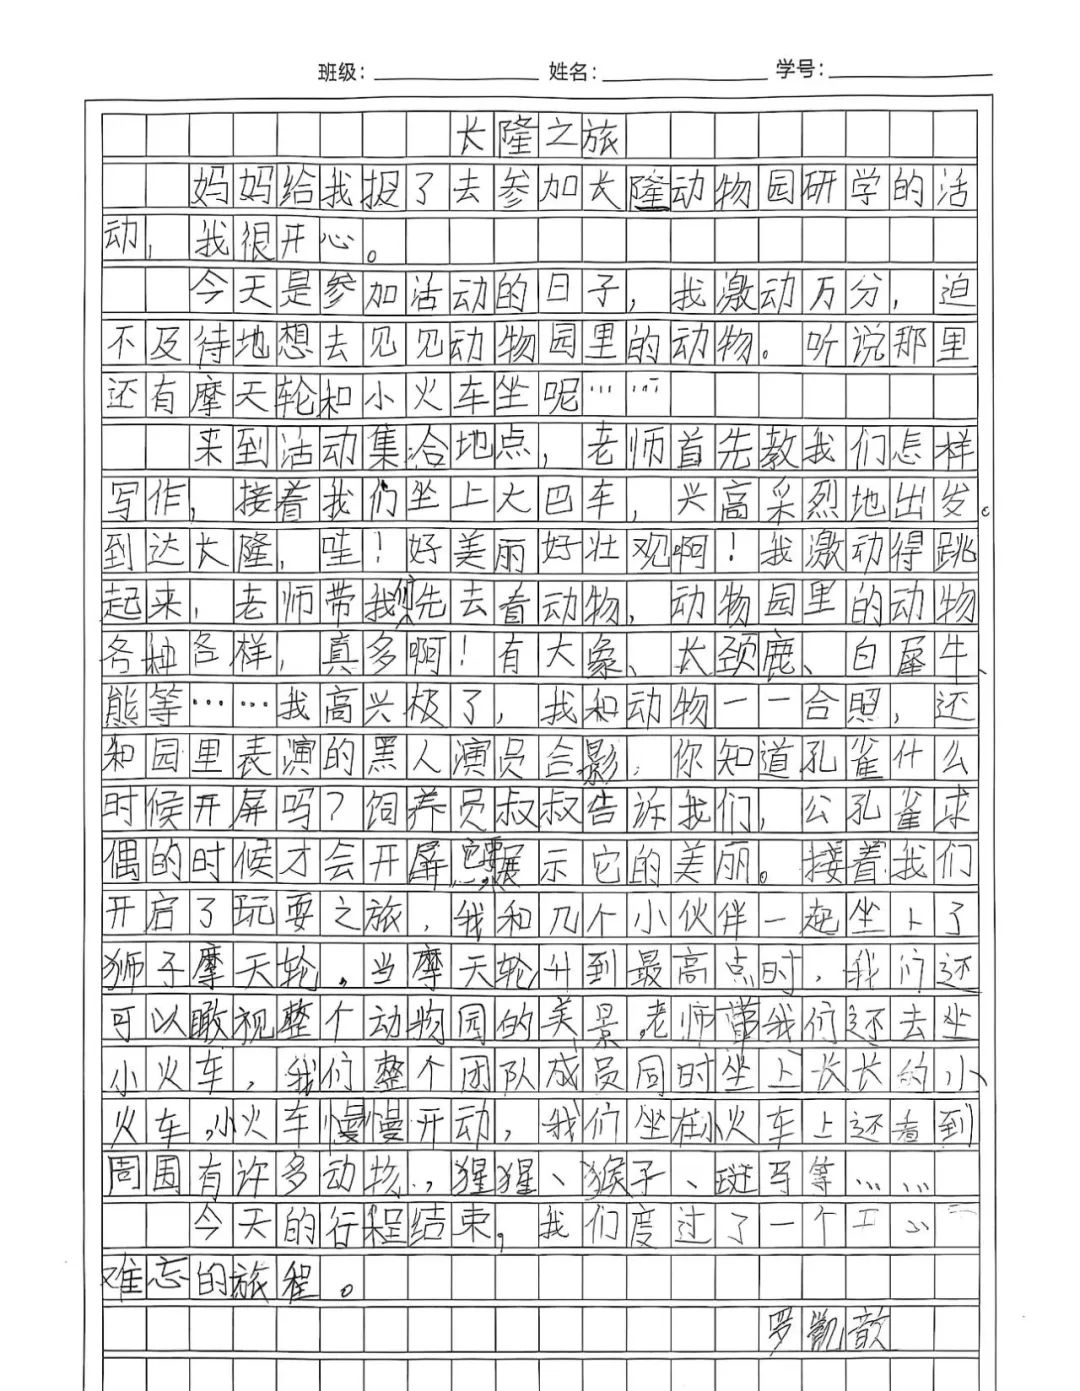 班级: 姓名: 学号:
长隆之旅
妈妈给我报了去参加长隆动物园研学的活
动，我很开心。
今天是参加活动的日子，我激动万分，迫
不及待地想去见见动物园里的动物。听说那里
还有摩天轮和小火车坐呢……
来到活动集合地点，老师首先教我们怎样
写作，接着我们坐上大巴车，兴高采烈地出发。
到达长隆，哇！好美丽好壮观啊！我激动得跳
起来，老师带我们先去看动物，动物园里的动物
各种各样，真多啊！有大象、长颈鹿、白犀牛、
熊等……我高兴极了，我和动物一一合照，还
和园里表演的黑人演员合影，你知道孔雀什么
时候开屏吗？饲养员叔叔告诉我们，公孔雀求
偶的时候才会开屏，它要展示它的美丽。接着我们
开启了玩耍之旅，我和几个小伙伴一起坐上了
狮子摩天轮，当摩天轮升到最高点时，我们还
可以瞰视整个动物园的美景，老师带我们还去坐
小火车，我们整个团队成员同时坐上长长的小
火车，小火车慢慢开动，我们坐在小火车上还看到
周围有许多动物，猩猩、猴子、斑马等……
今天的行程结束，我们度过了一个
难忘的旅程。
罗凯歆